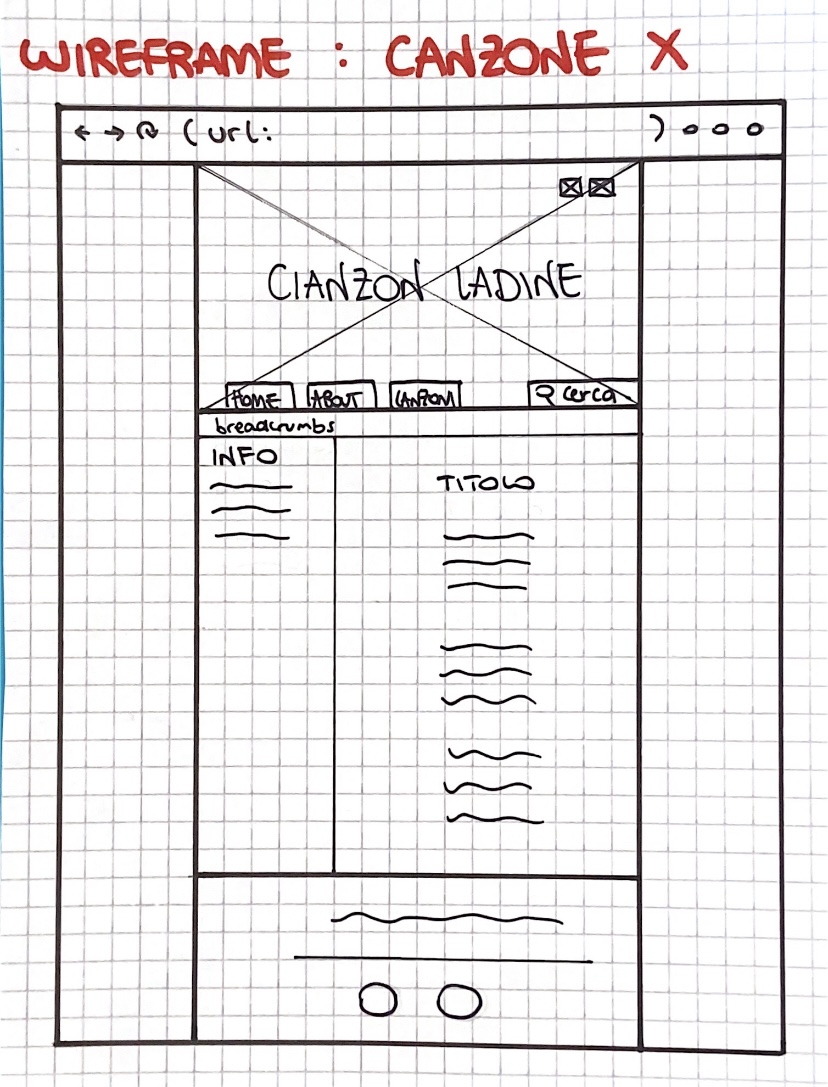 WIREFRAME : CANZONE X
(url: )
CIANZON LADINE
HOME ABOUT CANZONI cerca
breadcrumbs
INFO
TITOLO